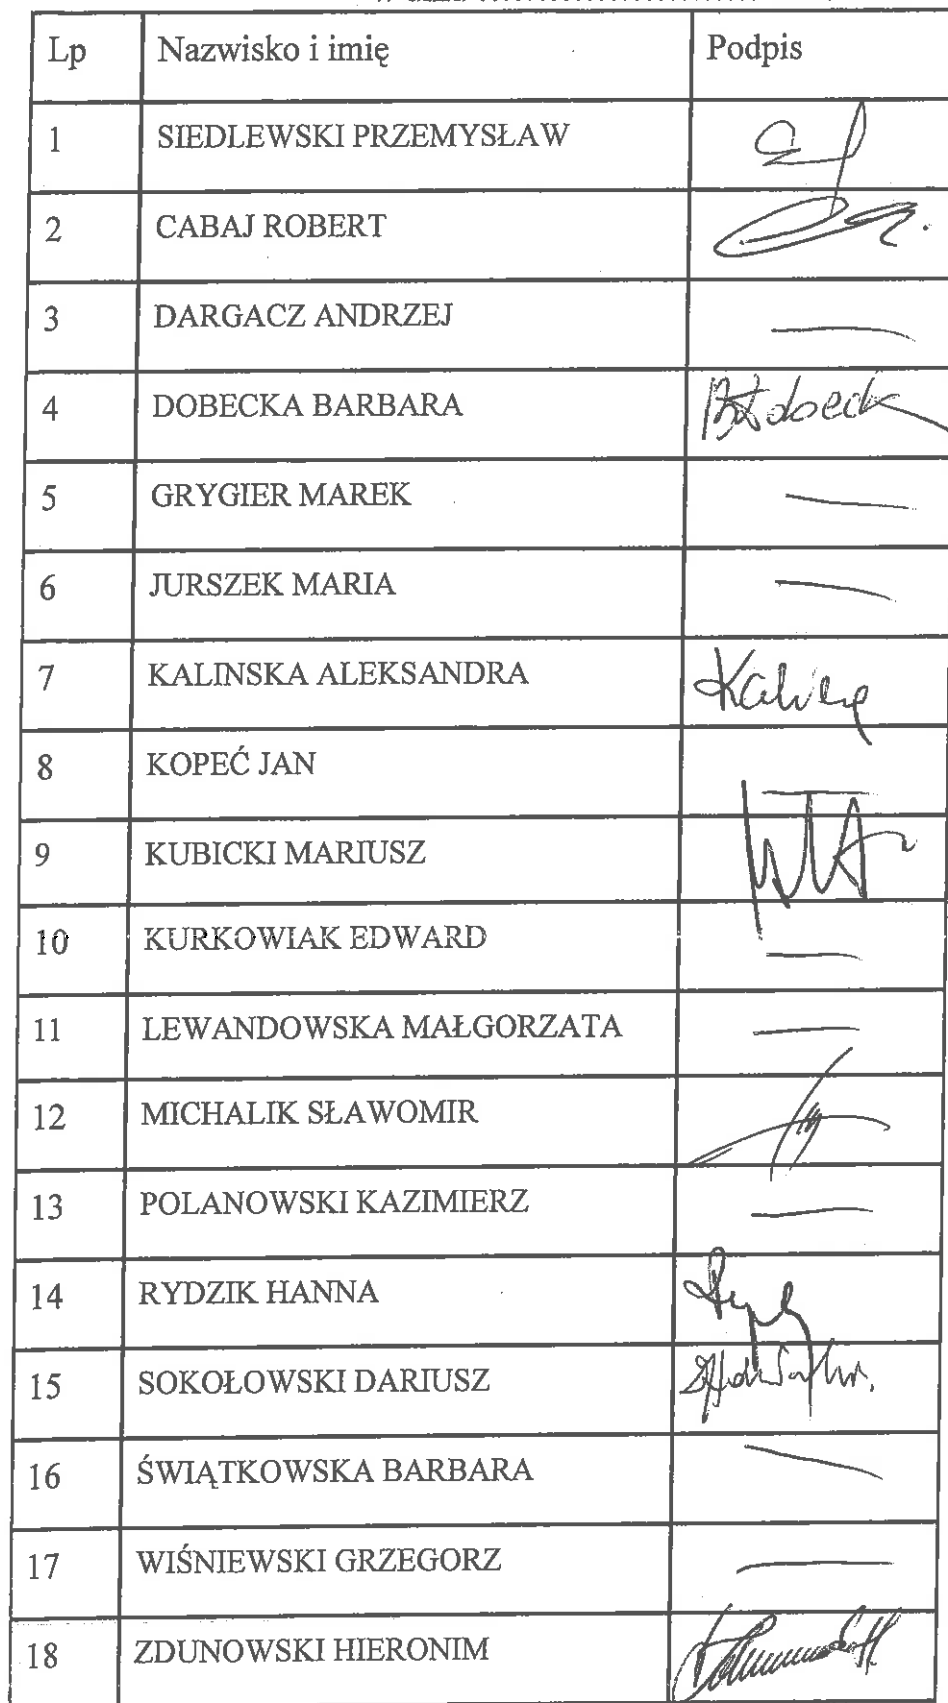 Lp Nazwisko i imię Podpis
1 SIEDLEWSKI PRZEMYSŁAW
2 CABAJ ROBERT
3 DARGACZ ANDRZEJ —
4 DOBECKA BARBARA
5 GRYGIER MAREK —
6 JURSZEK MARIA —
7 KALINSKA ALEKSANDRA
8 KOPEĆ JAN —
9 KUBICKI MARIUSZ
10 KURKOWIAK EDWARD —
11 LEWANDOWSKA MAŁGORZATA —
12 MICHALIK SŁAWOMIR
13 POLANOWSKI KAZIMIERZ —
14 RYDZIK HANNA
15 SOKOŁOWSKI DARIUSZ
16 ŚWIĄTKOWSKA BARBARA —
17 WIŚNIEWSKI GRZEGORZ —
18 ZDUNOWSKI HIERONIM